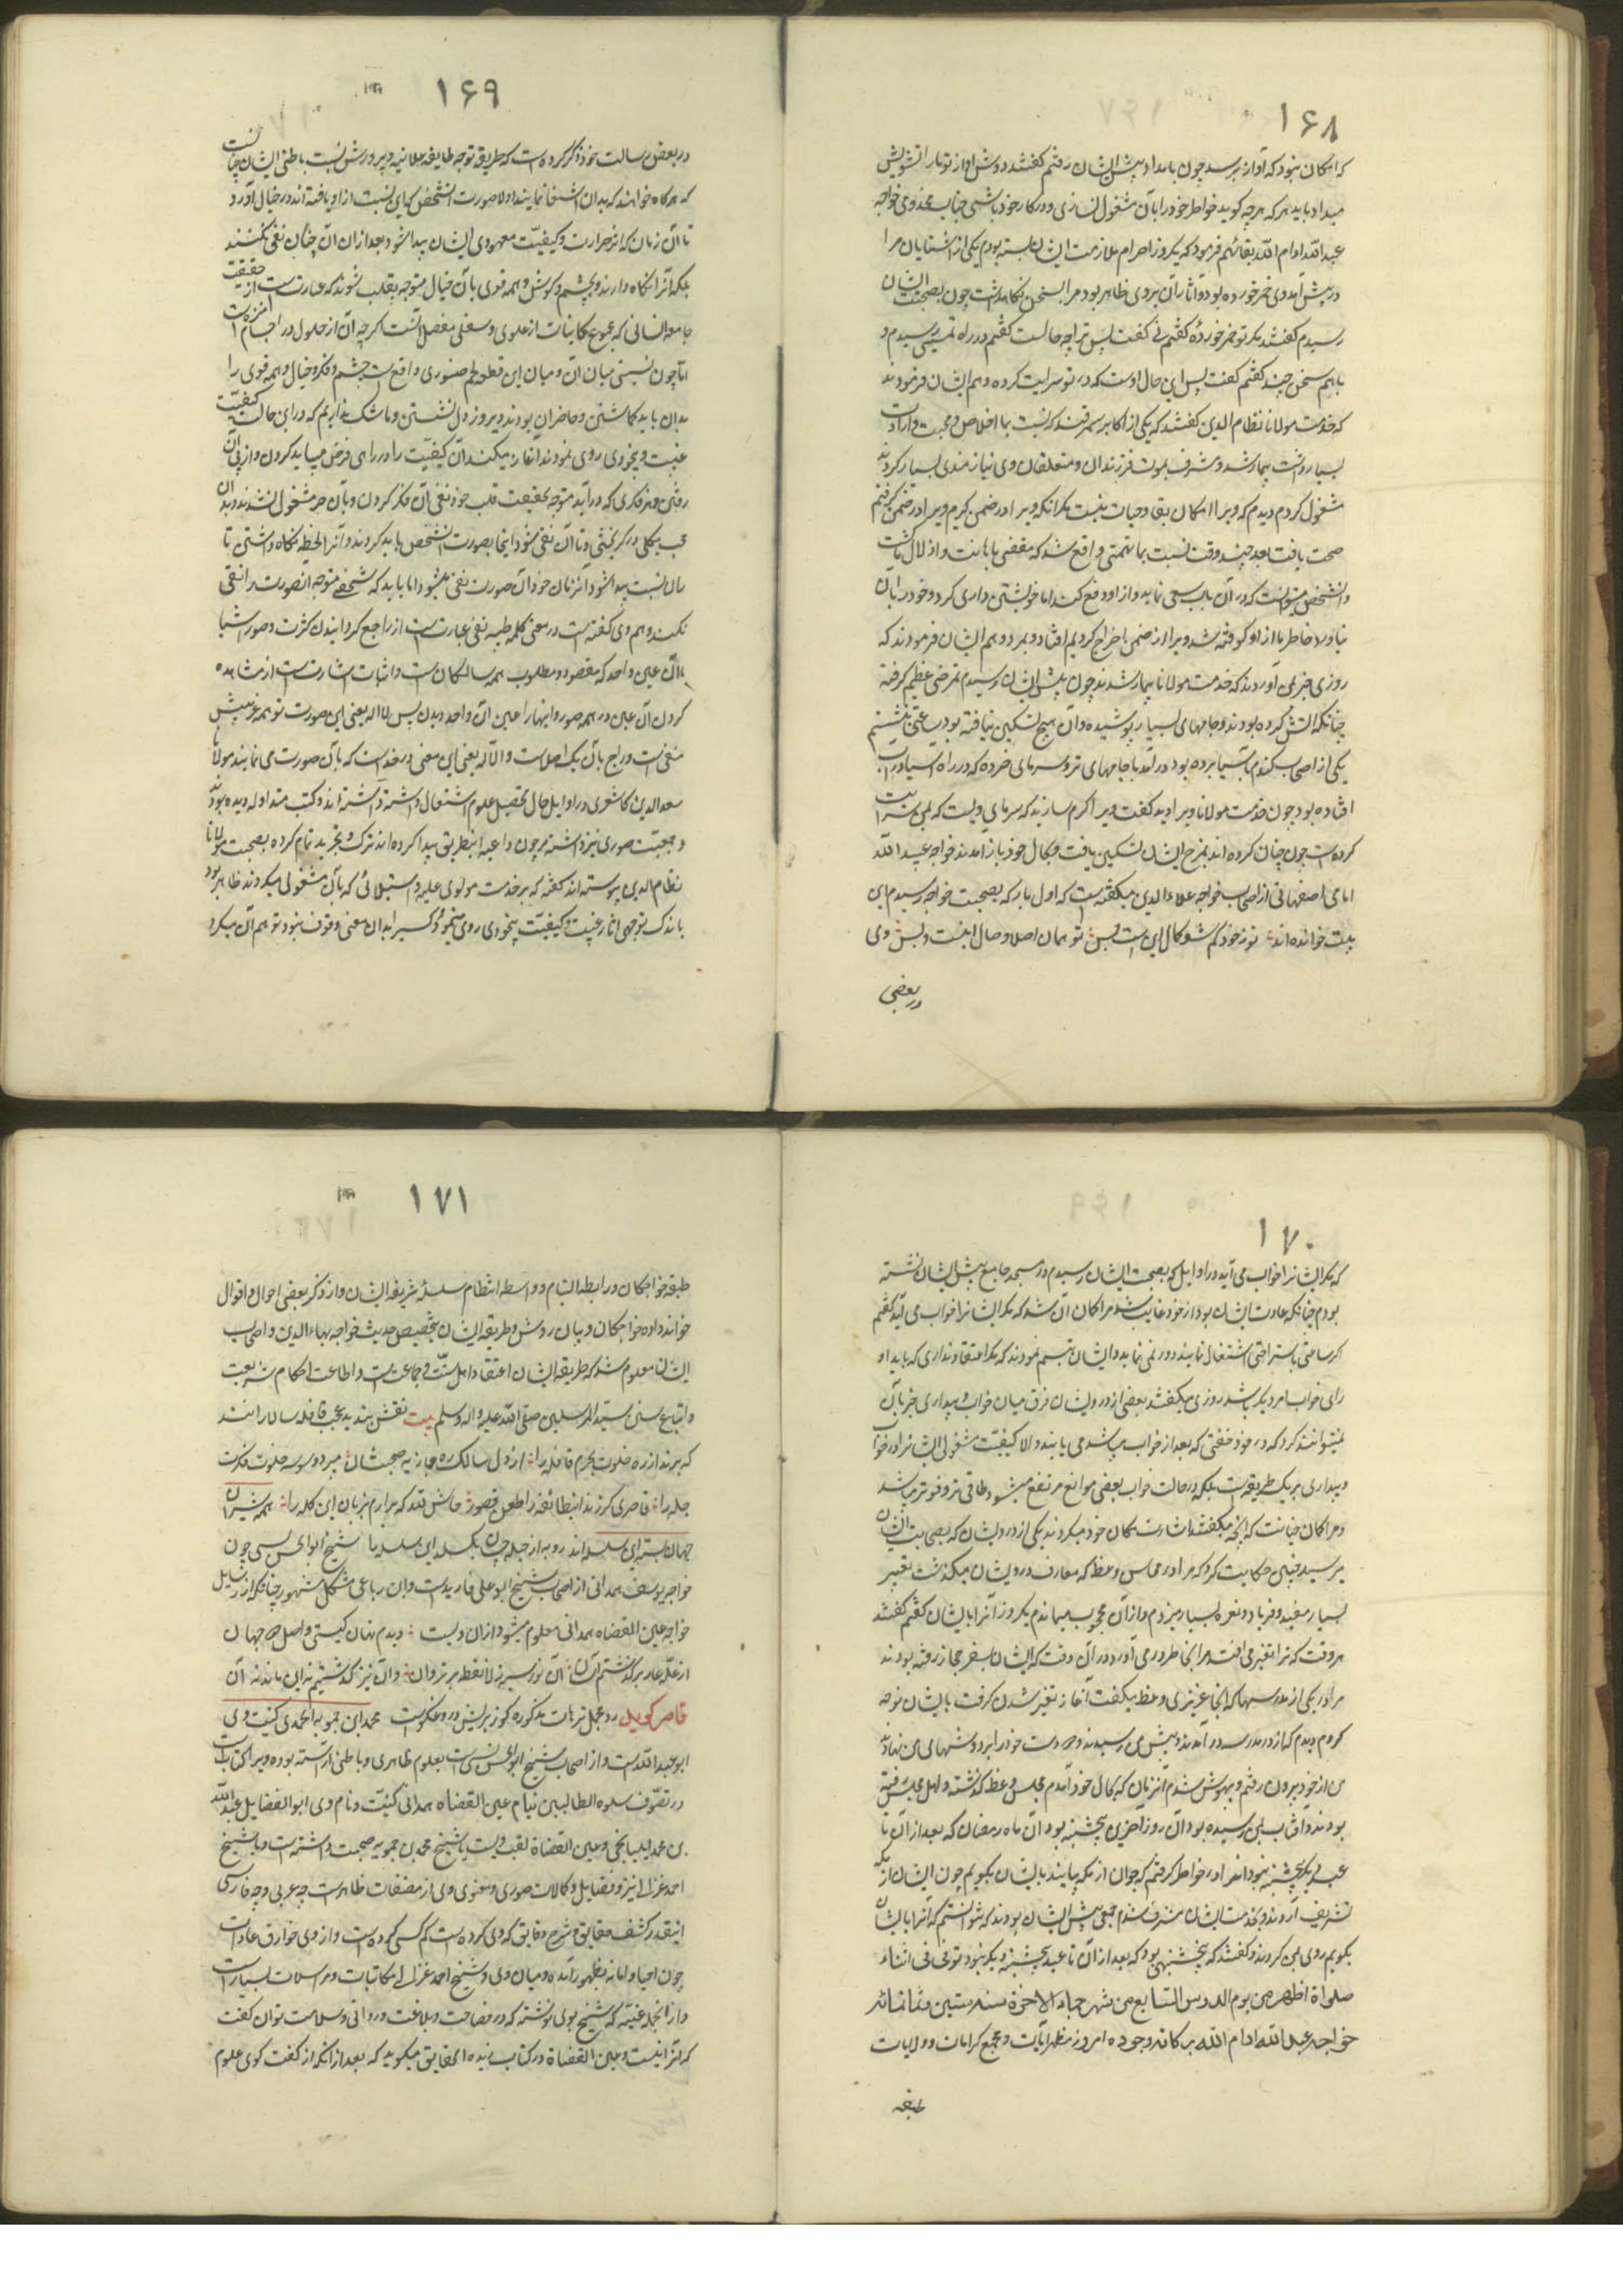 ۱۶۸
که امکان نبود که آواز برسد چون بامداد پیش ایشان رفتم گفتند دوش آواز تو ما را تشویش
میداد باید هر که هر چه گوید خاطر خود را بآن مشغول نسازی و در کار خود باشی جناب مخدومی خواجه
عبید الله ادام الله بقائهم فرمود که یکروز احرام ملازمت ایشان بسته بودم یکی از آشنایان مرا
در پیش آمد وی خمر خورده بود و آثار آن بر وی ظاهر بود مرا بسخن نگاه داشت چون بصحبت ایشان
رسیدم گفتند مگر تو خمر خورده گفتم نی گفت پس ترا چه حالست گفتم در راه بمستی رسیدم و
با هم سخن چند گفتم گفت پس این حال اوست که در تو سرایت کرده و هم ایشان فرمودند
که خدمت مولانا نظام الدین گفتند که یکی از اکابر سمرقند که نسبت بما اخلاص و محبت و ارادت
بسیار داشت بیمار شد و مشرف بموت فرزندان و متعلقان وی نیازمندی بسیار کردند
مشغول کردم دیدم که ویرا امکان بقا و حیات نیست مگر آنکه ویرا در ضمن گیرم ویرا در ضمن گرفتم
صحت یافت بعد چند وقت نسبت بما تهمتی واقع شد که مفضی باهانت و اذلال باشد
و آن شخص میتوانست که در آن باب سعی نماید و از ما دفع کند اما خویشتن داری کرد و خود را بآن
نیاورد خاطر ما از او کوفته شد ویرا از ضمن اخراج کردیم افتاد و بمرد و هم ایشان فرمودند که
روزی خبر بمن آوردند که خدمت مولانا بیمار شدند چون پیش ایشان رسیدم تب لرزه عظیم گرفته
چنانکه آتش کرده بودند و جامهای بسیار پوشیده و آن هیچ تسکین نیافته بود ساعتی نشستم
یکی از اصحاب گندم بآسیا برده بود در آمد با جامهای تر و سرمای خورده که در راه آسیا در آب
افتاده بود چون خدمت مولانا ویرا دید گفت ویرا گرم سازید که سرمای ویست که بمن سرایت
کرده است چون چنان کرده اند مزاج ایشان تسکین یافت و بحال خود باز آمدند خواجه عبید الله
امامی اصفهانی از اصحاب خواجه علاء الدین میگفته است که اول بار که بصحبت خواجه رسیدم این
بیت خوانده اند تو ز خود گم شو کمال این است و بس تو ممان اصلا وصال اینست و بس وی
در بعضی
۱۶۹
در بعض رسالت خود ذکر کرده است که طریقه توجه طایفه علائیه و پرورش نسبت باطنی ایشان چنانست
که هر گاه خواهند که بدان اشتغال نمایند اولا صورت آن شخص که این نسبت از او یافته اند در خیال آورد
تا آن زمان که اثر حرارت و کیفیت معهودی ایشان پیدا شود بعد از آن آن خیال نفی نکنند
بلکه آنرا نگاه دارند و بچشم و گوش و همه قوی بآن خیال متوجه بقلب شوند که عبارتست از حقیقت
جامعه انسانی که مجموع کاینات از علوی و سفلی مفصل آنست اگر چه آن از حلول در اجسام منزه است
اما چون نسبتی میان آن و میان این قطعه لحم صنوبری واقع است چشم و فکر و خیال و همه قوی را
بدان باید گماشتن و حاضر آن بودن و بر در دل نشستن و ما شک نداریم که در این حالت کیفیت
غیبت و بیخودی روی نمودن آغاز میکند آن کیفیت را در راهی فرض میباید کردن و از پی آن
رفتن و هر فکری که در آید متوجه بحقیقت قلب خود نفی آن فکر کردن و بآن جزئی مشغول نشدن و بدان
مجمل بکلی در گریختن و تا آن نفی نشود التجا بصورت آن شخص باید کردن و آنرا لحظه نگاه داشتن تا
باز آن نسبت پیدا شود آنزمان خود آن صورت نفی میشود اما باید که شخص متوجه آنصورت را نفی
نکند و هم وی گفته است در معنی کلمه طیبه نفی عبارتست از راجع گردانیدن کثرت و صور اشیا
بآن عین واحد که مقصود و مطلوب همه سالکان است و اثبات اشارتست از مشاهده
کردن آن عین در همه صور و اینها را عین آن واحد دیدن پس لا اله یعنی این صورت توهمه غیریتش
منفی است و راجع بآن یک اصلست و الا الله یعنی این معنی واحد است که بآن صورت می نماید مولانا
سعد الدین کاشغری در اوایل حال تحصیل علوم اشتغال داشته اند و کتب متداوله دیده بودند
و جمعیت صوری نیز داشته چون داعیه این طریق پیدا کرده اند ترک و تجرید تمام کرده بصحبت مولانا
نظام الدین پیوسته اند گفته که بر خدمت مولوی غلبه و استیلائی که بآن مشغولی میکردند ظاهر بود
باندک توجهی آثار غیبت و کیفیت بیخودی روی مینمود و کسی را بدان معنی وقوف نبود توهم آن میکرد
۱۷۰
که مگر ایشانرا خواب می آید در اوایل که بصحبت ایشان رسیدم در مسجد جامع پیش ایشان نشسته
بودم چنانکه عادت ایشان بود از خود غایب شدند مرا گمان آن شد که مگر ایشانرا خواب می آید گفتم
اگر ساعتی باستراحتی اشتغال نمایند دور نمی نماید و ایشان تبسم نمودند که مگر اعتقاد نداری که ما را ورای
خواب امر دیگر باشد روزی میگفتند بعضی از درویشان فرق میان خواب و بیداری جز بآن
نمیتوانند کرد که در خود خفتی که بعد از خواب میباشد می یابند و الا کیفیت مشغولی ایشانرا در خواب
و بیداری بر یک طریق است بلکه در حالت خواب بعضی موانع مرتفع میشود صافی تر و قوی تر میباشد
و مرا گمان چنانست که آنچه میگفتند اشارت بحال خود میکردند یکی از درویشان که بصحبت ایشان
میرسید چنین حکایت کرد که مرا در مجالس وعظ که معارف درویشان میگذشت تغییر
بسیار میشد و فریاد و نعره بسیار میزدم و از آن محجوب میماندم یکروز آنرا بایشان گفتم گفتند
هر وقت که ترا تغیر می افتد مرا بخاطر در می آور در آن وقت که ایشان بسفر حجاز رفته بودند
مرا در یکی از مدرسها که آنجا عزیزی وعظ میگفت آغاز تغیر شدن گرفت بایشان توجه
کردم دیدم که از در مدرسه در آمدند و پیش من رسیدند و هر دو دست خود را بر دوشهای من نهادند
من از خود بیرون رفتم و بیهوش شدم آنزمان که بحال خود آمدم مجلس وعظ گذشته و اهل مجلس رفته
بودند و آفتاب بمن رسیده بود و آن روز آخرین پنجشنبه بود آن ماه رمضان که بعد از آن تا
عید دیگر پنجشنبه نبود آنرا در خاطر گرفتم که چون از مکه بیایند بایشان بگویم چون ایشان از مکه
تشریف آوردند و بخدمت ایشان مشرف شدم جمعی پیش ایشان بودند که نتوانستم که آنرا بایشان
بگویم روی بمن کردند و گفتند که پنجشنبه بود که بعد از آن تا عید پنجشنبه دیگر نبود توفی فی اثناء
صلواة الظهر من یوم السابع من شهر جمادی الاخرة سنه ستین و ثمانمائه
خواجه عبید الله ادام الله برکات وجوده امروز مظهر آیات و مجمع کرامات و ولایات
طبقه
۱۷۱
طبقه خواجگان و رابطه التیام و واسطه انتظام سلسله شریفه ایشان و از ذکر بعضی احوال و اقوال
خانواده خواجگان و بیان روش و طریقه ایشان بتخصیص حدیث خواجه بهاء الدین و اصحاب
ایشان معلوم شد که طریقه ایشان اعتقاد اهل سنت و جماعت است و اطاعت احکام شریعت
و اتباع سنن سید المرسلین صلی الله علیه و اله و سلم بیت نقشبندیه عجب قافله سالارانند
که برند از ره خلوت بحرم قافله را از دل سالک ره جاذبه صحبتشان میبرد وسوسه خلوت و فکر
چله را قاصری گر زند این طائفه را طعن قصور حاش لله که برآرم بزبان این گله را همه شیران
جهان بسته این سلسله اند روبه از حیله چسان بگسلد این سلسله را شیخ ابو الحسن بستی چون
خواجه یوسف همدانی از اصحاب شیخ ابو علی فارمدیست و این رباعی مشکل مشهور چنانکه از رسایل
خواجه عین القضاه همدانی معلوم میشود از آن ویست دیدم نهان گیتی و اصل جهان
از علت و عار برگذشتیم آسان آن نور سیه ز لا نقط برتر دان زان نیز گذشتیم نه این ماند نه آن
قاصر گوید محمد ابن حمویه الجوینی کنیت وی
ابو عبد الله است و از اصحاب شیخ ابو الحسن بستی است بعلوم ظاهری و باطنی آراسته بوده ویرا کتابیست
در تصوف سلوة الطالبین نام عین القضاه همدانی کنیت و نام وی ابو الفضایل عبد الله
بن محمد المیانجی و عین القضاة لقب ویست با شیخ محمد بن حمویه صحبت داشته است و با شیخ
احمد غزالی نیز و فضایل و کمالات صوری و معنوی وی از مصنفات ظاهر است چه عربی و چه فارسی
اینقدر کشف حقایق و شرح دقایق که وی کرده است کم کسی کرده است و از وی خوارق عادات
چون احیا و اماته بظهور آمده و میان وی و شیخ احمد غزالی مکاتبات و مراسلات بسیار است
و از آنجمله عینیه که شیخ بوی نوشته که در فصاحت و بلاغت و روانی و سلاست توان گفت
که آنرا نیست و عین القضاة در کتاب زبده الحقایق میگوید که بعد از آنکه از گفت گوی علوم